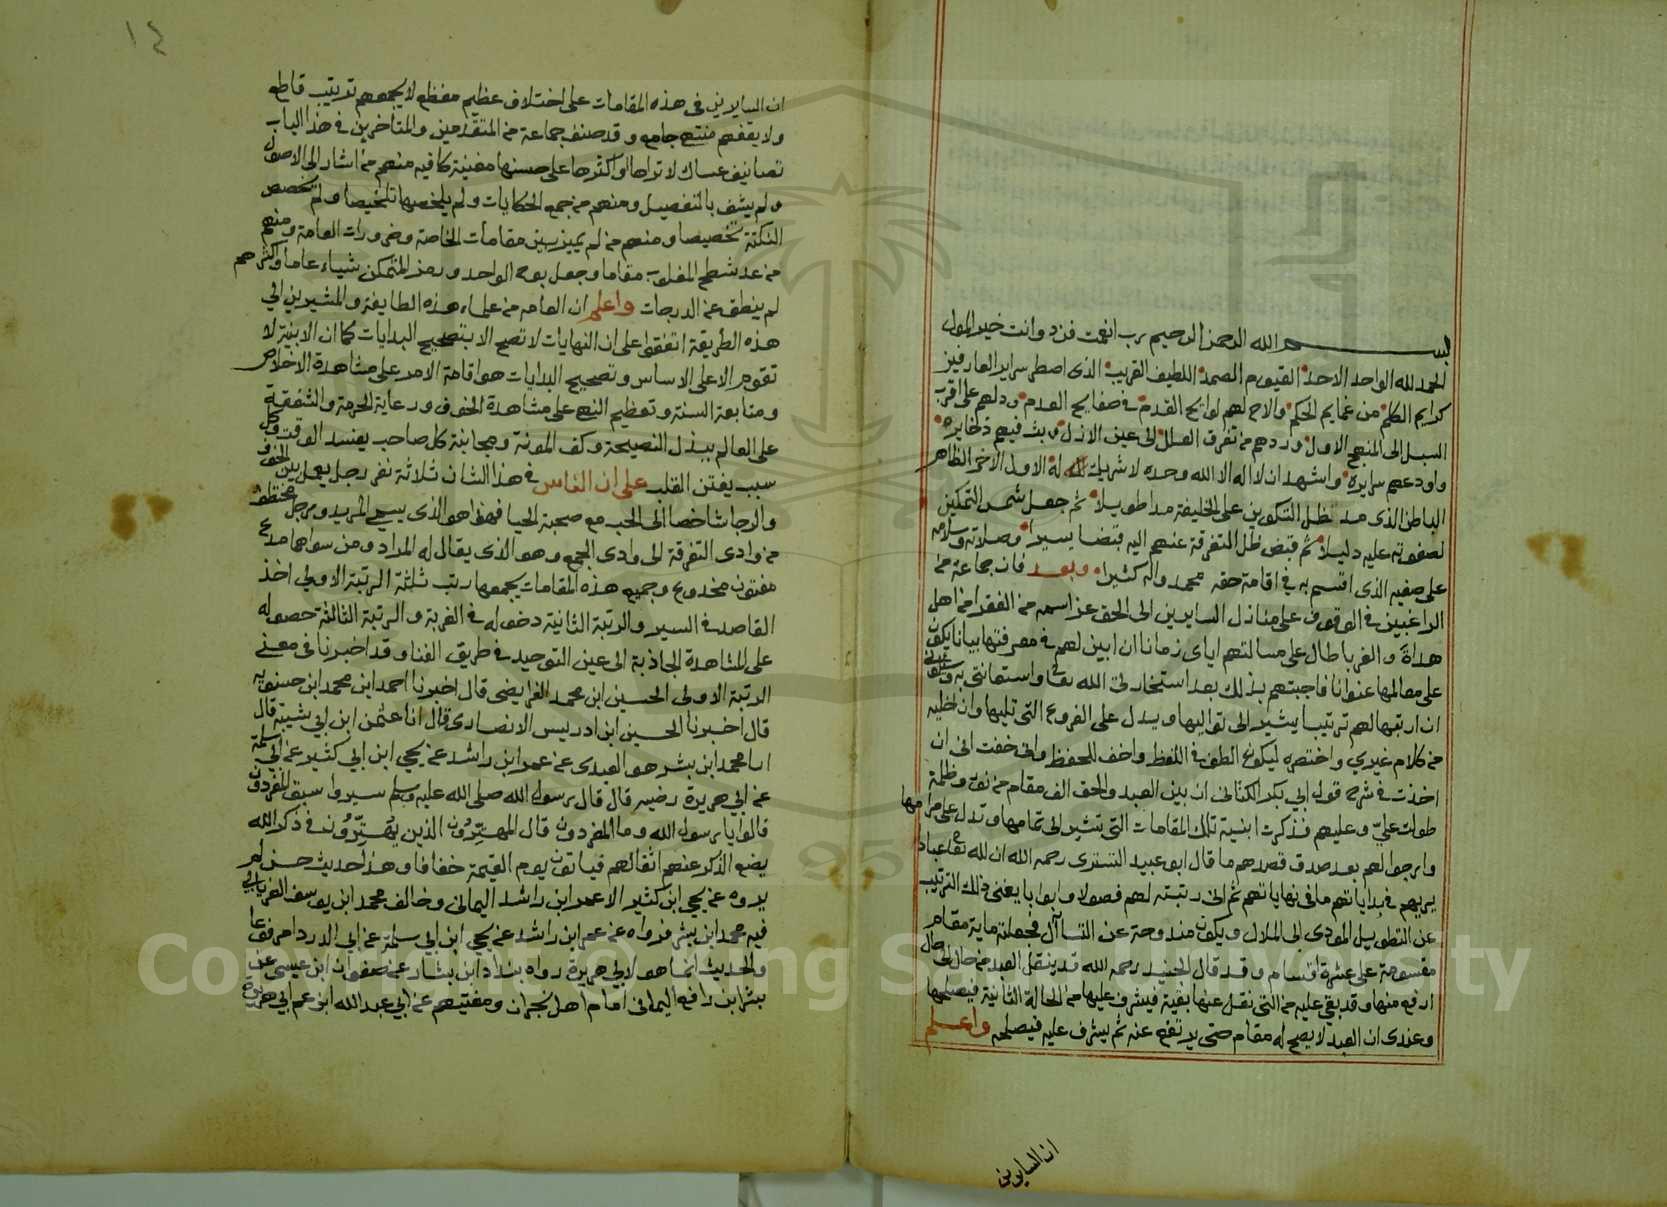 بسم الله الرحمن الرحيم رب انعمت فزد وانت خير المول
الحمد لله الواحد الاحد القيوم الصمد اللطيف القريب الذى امطر سراير العارفين
كرايم الكلم من غمايم الحكم والاح لهم لوايح القدم فى صفايح العدم ودلهم على اقرب
السبل الى المنهج الاول وردهم من تفرق العلل الى عين الازل وبث فيهم ذخايره
واودعهم سرايره واشهد ان لا اله الا الله وحده لا شريك له الاول الاخر الظاهر
الباطن الذى مد ظل التكوين على الخليفة مدا طويلا ثم جعل شمس التمكين
لصفوته عليه دليلا ثم قبض ظل التفرقة عنهم اليه قبضا يسيرا وصلاته وسلامه
على صفيه الذى اقسم به فى اقامة حقه محمد واله كثيرا وبعد فان جماعة من
الراغبين فى الوقوف على منازل السايرين الى الحق عز اسمه من الفقرا من اهل
هداة والغربا طال على مسالتهم اياى زمانا ان ابين لهم فى معرفتها بيانا يكون
على معالمها عنوانا فاجبتهم بذلك بعد استخارتى الله تعالى واستعانتى به وسالونى
ان ارتبها لهم ترتيبا يشير الى تواليها ويدل على الفروع التى تليها وان اخليه
من كلام غيرى واختصره ليكون الطف فى اللفظ واخف للحفظ وانى خفت انى ان
اخذت فى شرح قول ابى بكر الكتانى ان بين العبد والحق الف مقام من نور وظلمة
طولت على وعليهم فذكرت ابنية تلك المقامات التى تشير الى تمامها وتدل على مرامها
وارجوا لهم بعد صدق قصدهم ما قال ابو عبيد التسترى رحمه الله ان لله تعا عبادا
يريهم فى بداياتهم ما فى نهاياتهم ثم انى رتبته لهم فصولا وابوابا يغنى ذلك الترتيب
عن التطويل المودى الى الملال ويكون مندوحة عن التسآل فجعلته ماية مقام
مقسومة على عشرة اقسام وقد قال الجنيد رحمه الله قد ينقل العبد من حال الى حال
ارفع منها وقد بقى عليه من التى نقل عنها بقية فيشرف عليها من الحالة الثانية فيصلحها
وعندى ان العبد لا يصح له مقام حتى يرتفع عنه ثم يشرف عليه فيصلحه واعلم
ان السايرين
١٤
ان السايرين فى هذه المقامات على اختلاف عظيم مفظع لا يجمعهم ترتيب قاطع
ولا يقفهم منتهى جامع وقد صنف جماعة من المتقدمين والمتاخرين فى هذا الباب
تصانيف عساك لا تراها او اكثرها على حسنها مغنية كافيه منهم من اشار الى الاصول
ولم يشف بالتفصيل ومنهم من جمع الحكايات ولم يلخصها تلخيصا ولم يخصص
النكتة تخصيصا ومنهم من لم يميز بين مقامات الخاصة وضرورات العامة ومنهم
من عد شطح المغلوب مقاما وجعل بوح الواجد ورمز المتمكن شياء عاما واكثرهم
لم ينطق عن الدرجات واعلم ان العامه من علماء هذه الطايفة والمشيرين الى
هذه الطريقة اتفقوا على ان النهايات لا تصح الا بتصحيح البدايات كما ان الابنية لا
تقوم الا على الاساس وتصحيح البدايات هو اقامة الامر على مشاهدة الاخلاص
ومتابعة السنة وتعظيم النهى على مشاهدة الخوف ورعاية الحرمة والشفقة
على العالم ببذل النصيحة وكف المونة ومجانبة كل صاحب يفسد الوقت وكل
سبب يفتن القلب على ان الناس فى هذا الشان ثلاثة نفر رجل يعمل بين الخوف
والرجا شاخصا الى الحب مع صحبة الحيا فهذا هو الذى يسمى المريد ورجل مختطف
من وادى التفرقة الى وادى الجمع وهو الذى يقال له المراد ومن سواهما مدع
مفتون مخدوع وجميع هذه المقامات يجمعها رتب ثلثة الرتبة الاولى اخذ
القاصد فى السير والرتبة الثانية دخوله فى الغربة والرتبة الثالثة حصوله
على المشاهدة الجاذبة الى عين التوحيد فى طريق الفنا وقد اخبرنا فى معنى
الرتبة الاولى الحسين ابن محمد الفرايضى قال اخبرنا احمد ابن محمد ابن حسنويه
قال اخبرنا الحسين ابن ادريس الانصارى قال انا عثمن ابن ابى شيبة قال
انا محمد ابن بشر هو العبدى عن عمر ابن راشد عن يحيى ابن ابى كثير عن ابى سلمة
عن ابى هريرة رضيه قال قال رسول الله صلى الله عليه وسلم سيروا سبق المفردون
قالوا يا رسول الله وما المفردون قال المهتزون الذين يهتزون فى ذكر الله
يضع الذكر عنهم اثقالهم فياتون يوم القيمة خفافا وهذا حديث حسن لم
يروه عن يحيى ابن كثير الا عمر ابن راشد اليمانى وخالف محمد ابن يوسف الفريابى
فيه محمد ابن بشر فرواه عن عمر ابن راشد عن يحيى ابن ابى سلمة عن ابى الدردا مرفوعا
والحديث انما هو لابى هريرة رواه بندار ابن بشار عن صفوان ابن عيسى عن
بشر ابن رافع اليمانى امام اهل نجران ومفتيهم عن ابى عبد الله ابن عم ابى هريرة
Copyright © King Saud University
1957